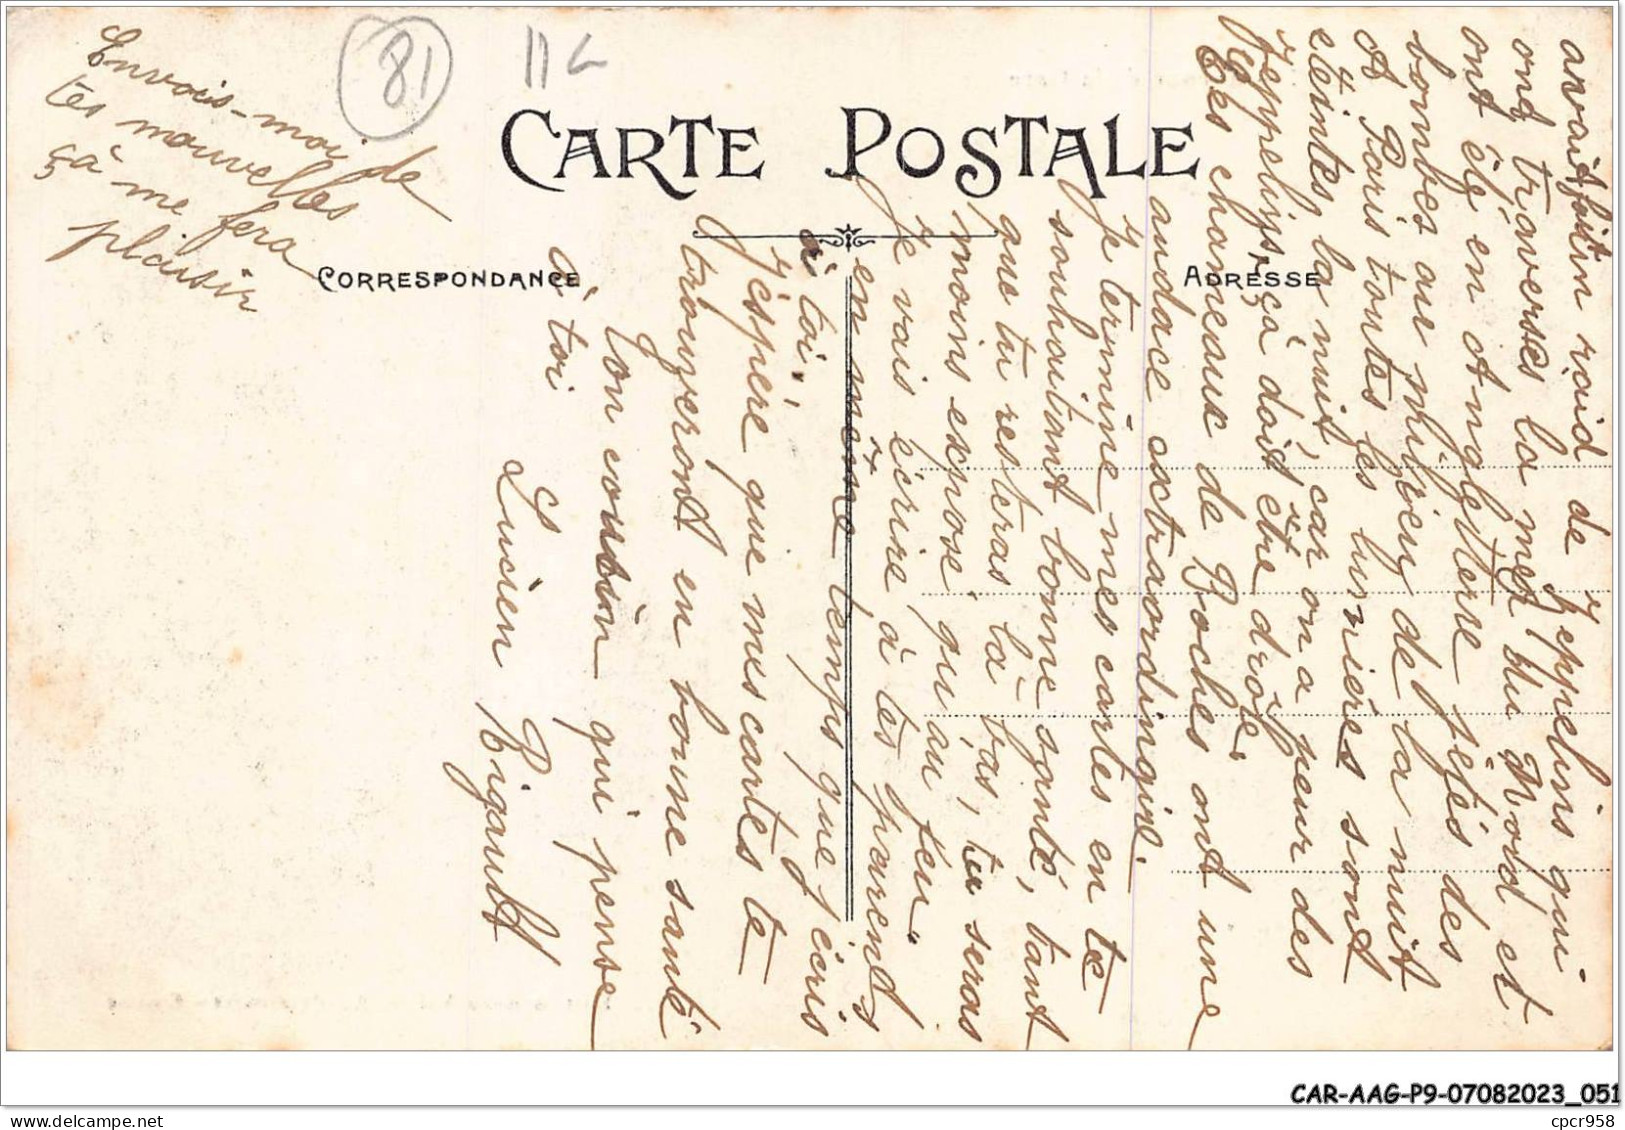 Envois-moi de
tes nouvelles
çà me fera
plaisir
81
CARTE POSTALE
CORRESPONDANCE
ADRESSE
avait fait un raid de Zeppelins qui
ont traversés la mer du Nord et
ont été en Angleterre jetés des
bombes au milieu de la nuit
A Paris toutes les lumières sont
éteintes la nuit, car on a peur des
zeppelins, çà doit être drôle.
Ces chameaux de Boches ont une
audace extraordinaire.
Je termine mes cartes en te
souhaitant bonne santé, tant
que tu resteras là-bas, tu seras
moins exposé qu'au feu.
Je vais écrire à tes parents
en même temps que j'écris
à toi,
J'espère que mes cartes te
trouveront en bonne santé
Ton cousin qui pense
à toi
Lucien Rigault
CAR-AAG-P9-07082023_051
cpcr958